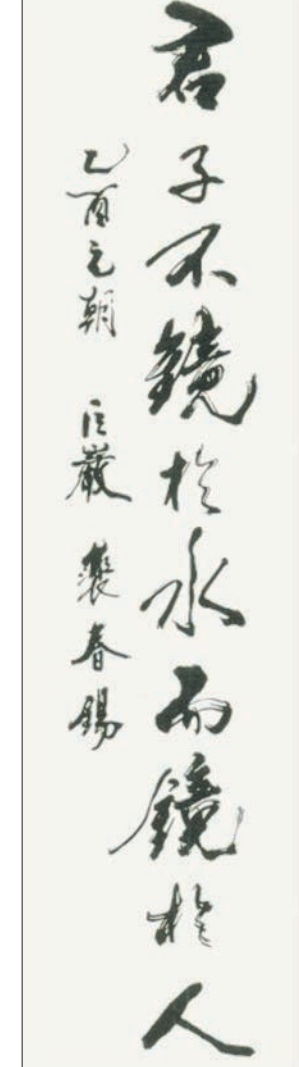 君子不鏡於水而鏡於人
乙酉元朝 巨巖 裵春錫